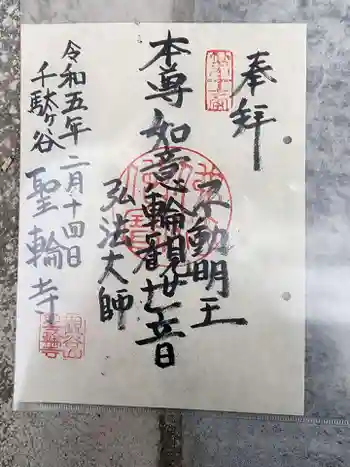 奉拝
不動明王
本尊如意輪観世音
弘法大師
令和五年二月十四日
千駄ヶ谷 聖輪寺